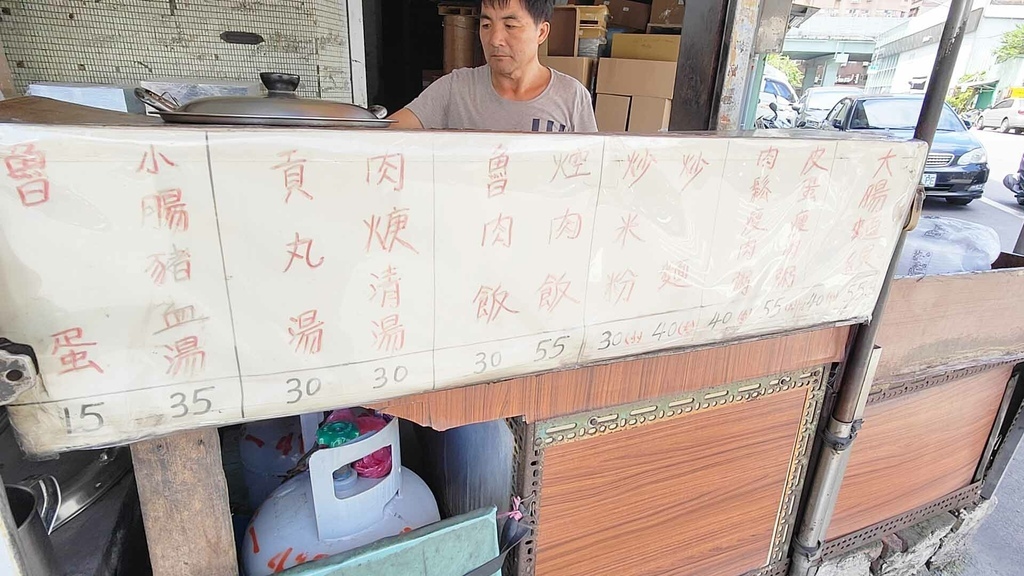 大腸麵線
皮蛋瘦肉粥
肉鬆瘦肉粥
炒麵
炒米粉
焢肉飯
魯肉飯
肉焿清湯
貢丸湯
小腸豬血湯
魯蛋
55
55
40
40
30
55
30
30
30
35
15